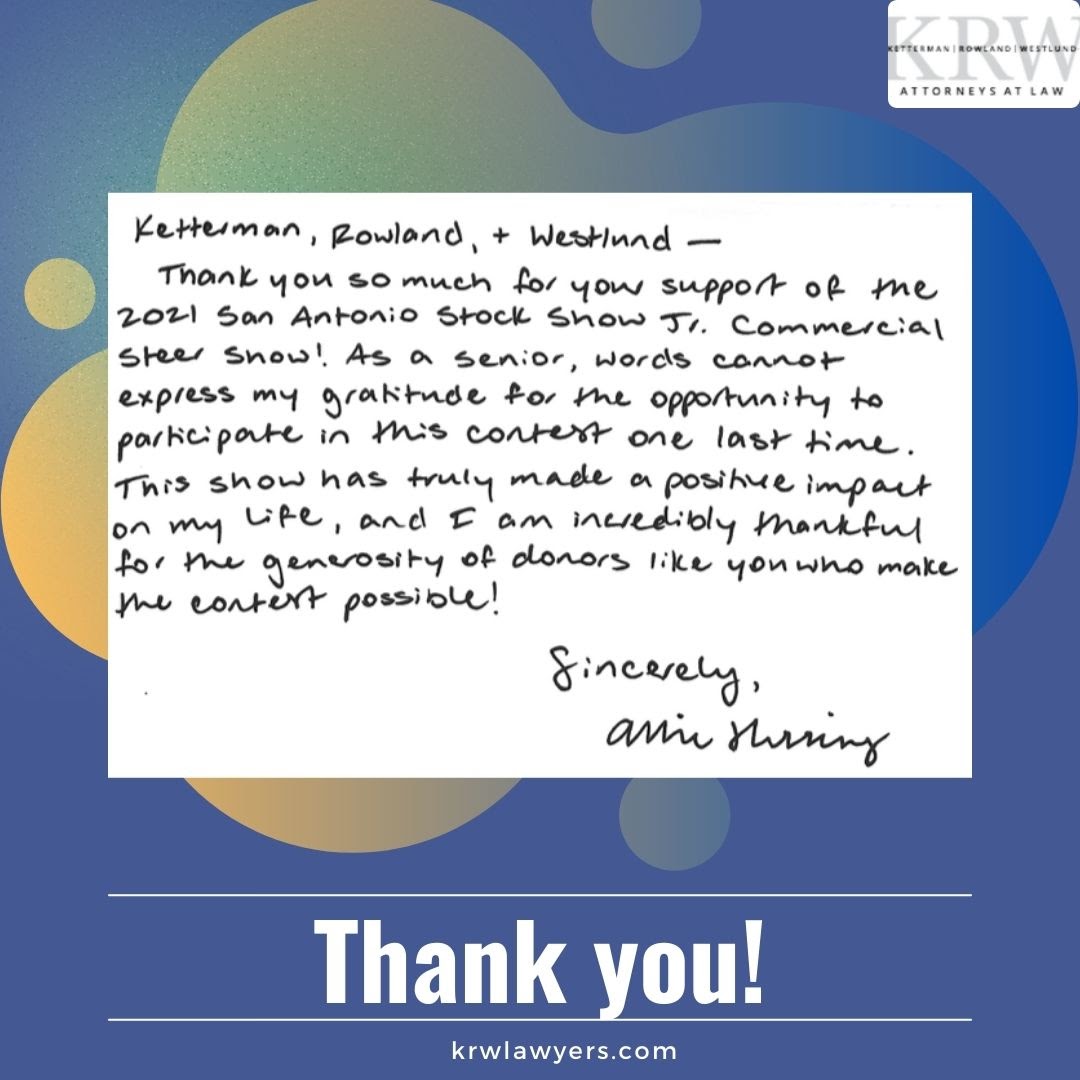 KRW
KETTERMAN | ROWLAND | WESTLUND
ATTORNEYS AT LAW
Ketterman, Rowland, + Westlund —
Thank you so much for your support of the
2021 San Antonio Stock Show Jr. Commercial
Steer Show! As a senior, words cannot
express my gratitude for the opportunity to
participate in this contest one last time.
This show has truly made a positive impact
on my life, and I am incredibly thankful
for the generosity of donors like you who make
the contest possible!
Sincerely,
Allie Herring
Thank you!
krwlawyers.com